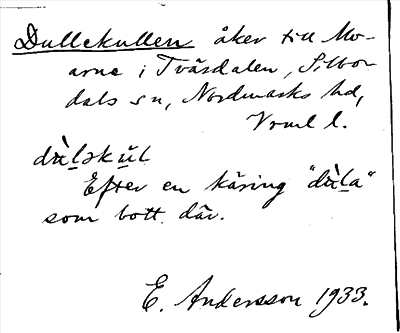 Dullekullen åker till Mo-
arna i Tvärdalen, Silbo-
dals sn, Nordmarks hd,
Vrml l.
dùl̠əku̠l
Efter en käring "dùl̠a"
som bott där.
E. Andersson 1933.